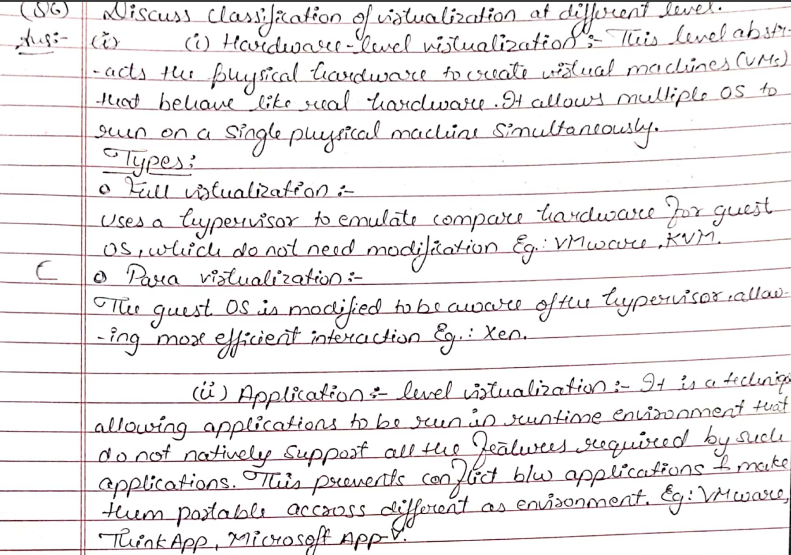 (56) Discuss classification of virtualization at different level.
Ans:- (i) (i) Hardware-level virtualization :- This level abstr-
-acts the physical hardware to create virtual machines (VMs)
that behave like real hardware. It allows multiple OS to
run on a single physical machine simultaneously.
Types:
o Full virtualization :-
Uses a hypervisor to emulate compare hardware for guest
OS, which do not need modification Eg.: VMware, KVM.
o Para virtualization :-
The guest OS is modified to be aware of the hypervisor, allow-
-ing more efficient interaction Eg.: Xen.
(ii) Application :- level virtualization :- It is a techniq
allowing applications to be run in runtime environment that
do not natively support all the features required by such
applications. This prevents conflict b/w applications & make
them portable accross different os environment. Eg: VMware,
ThinkApp, Microsoft App-V.